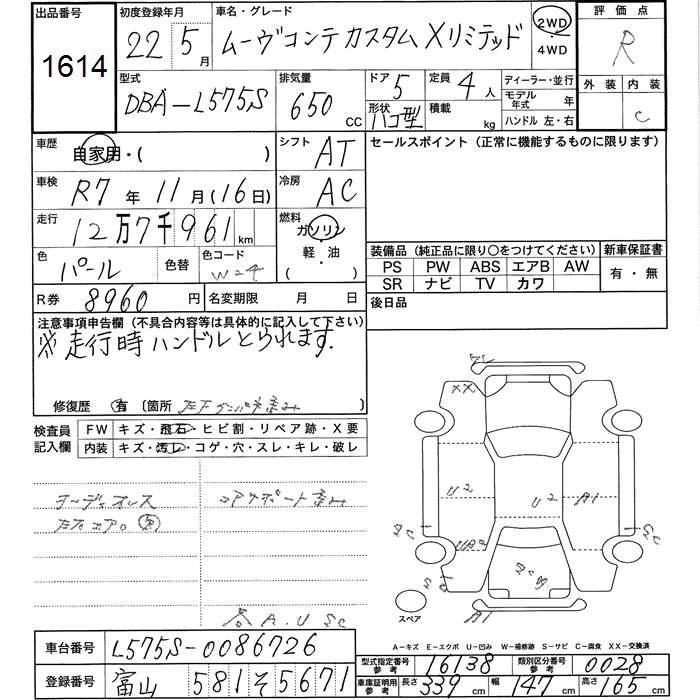 出品番号 初度登録年月 車名・グレード 評価点
1614 22 5月 ムーヴコンテ カスタム Xリミテッド 2WD 4WD R
型式 排気量 ドア 5 定員 4人 ディーラー・並行 外装 内装
DBA-L575S 650 cc 形状 ハコ型 積載 kg モデル年式 年 C
ハンドル 左・右
車歴 自家用・( ) シフト AT セールスポイント (正常に機能するものに限ります)
車検 R7年 11月(16日) 冷房 AC
走行 12万7千961km 燃料 ガソリン
軽・油
( )
色 パール 色替 色コード W-24 装備品 (純正品に限り〇をつけてください) 新車保証書
PS PW ABS エアB AW 有・無
SR ナビ TV カワ
R券 8960円 名変期限 月 日 後日品
注意事項申告欄 (不具合内容等は具体的に記入して下さい)
※走行時ハンドルとられます.
修復歴 有 〔箇所
検査員記入欄 FW キズ・飛石・ヒビ割・リペア跡・X要
内装 キズ・汚レ・コゲ・穴・スレ・キレ・破レ
コアサポート
A.U SC
XX
U2 U2 A1
UA2
A1
スペア
A-キズ E-エクボ U-凹み W-補修跡 S-サビ C-腐食 XX-交換済
車台番号 L575S-0086726
登録番号 富山 581 そ 5671
型式指定番号参考 16138 類別区分番号参考 0028
車庫証明用参考 長さ 339cm 幅 147cm 高さ 165cm